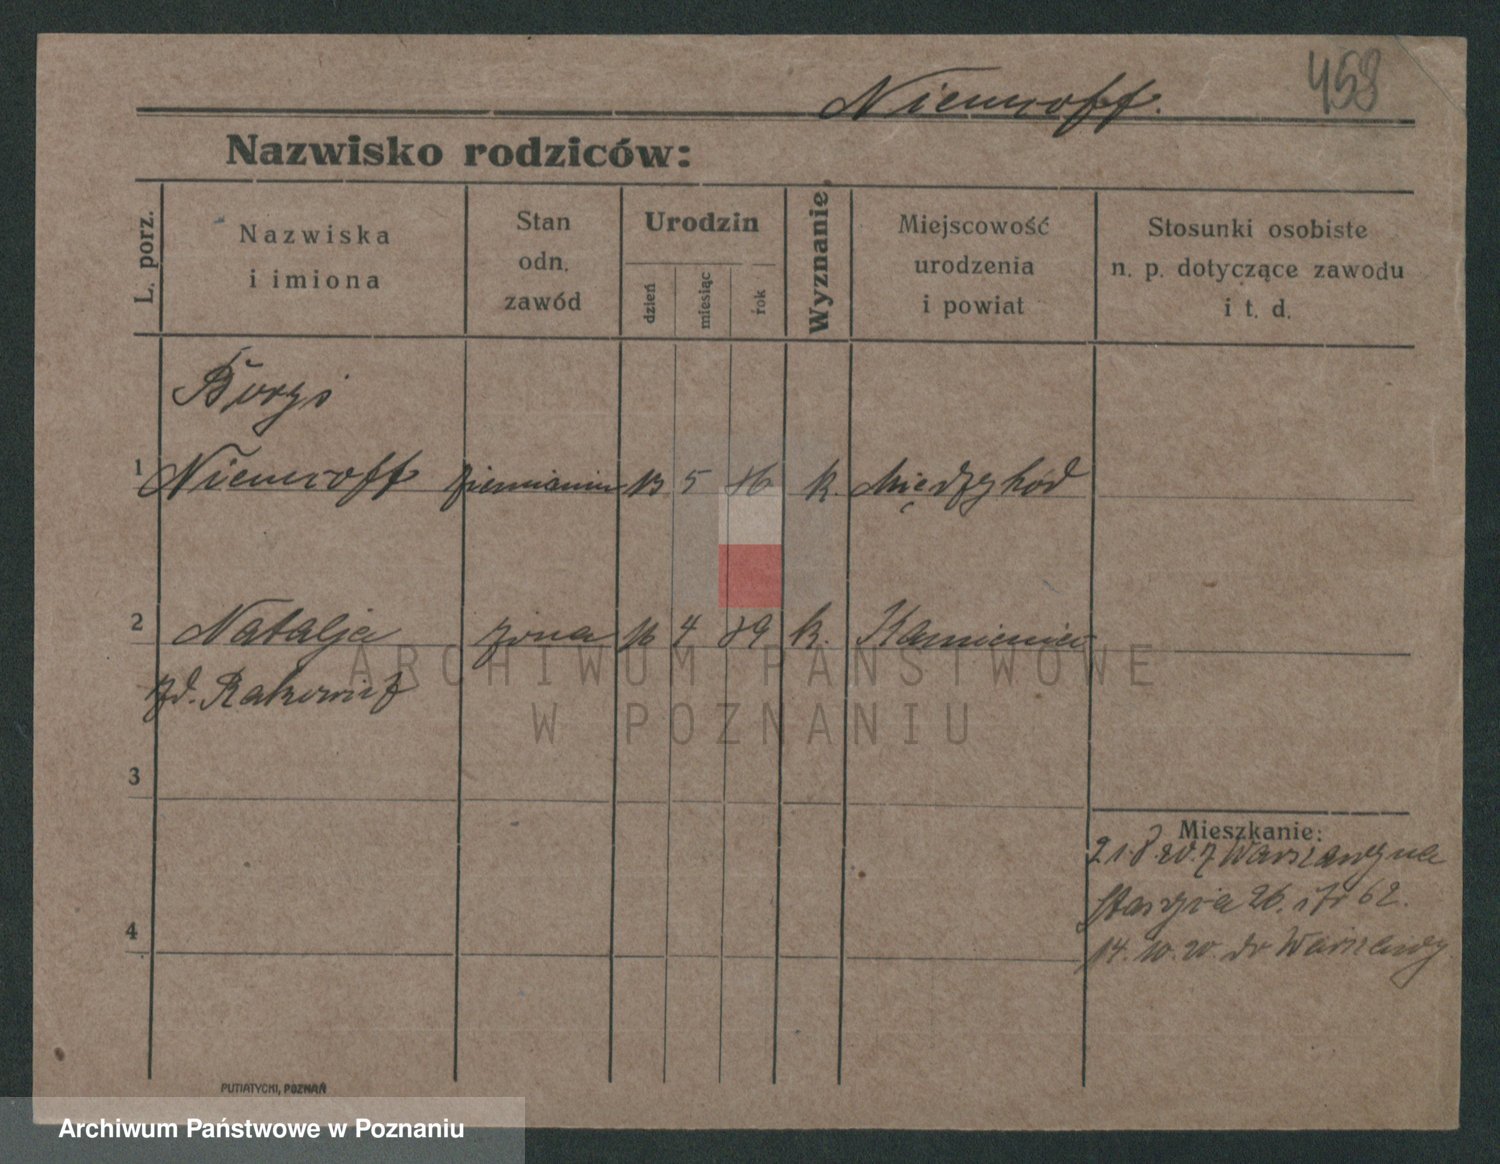 458
Niemroff.
Nazwisko rodziców:
L. porz.
Nazwiska
i imiona
Stan
odn.
zawód
Urodzin
dzień
miesiąc
rok
Wyznanie
Miejscowość
urodzenia
i powiat
Stosunki osobiste
n. p. dotyczące zawodu
i t. d.
Borys
1 Niemroff ziemianin 13 5 86 k. Międzyhód
2 Natalja żona 16 4 89 k. Kamieniec
zd. Rakowicz
3
4
Mieszkanie:
21.8.20. z Warszawy na
26. 62.
14.10.20. do Warszawy
PUTIATYCKI, POZNAŃ
ARCHIWUM PAŃSTWOWE
W POZNANIU
Archiwum Państwowe w Poznaniu